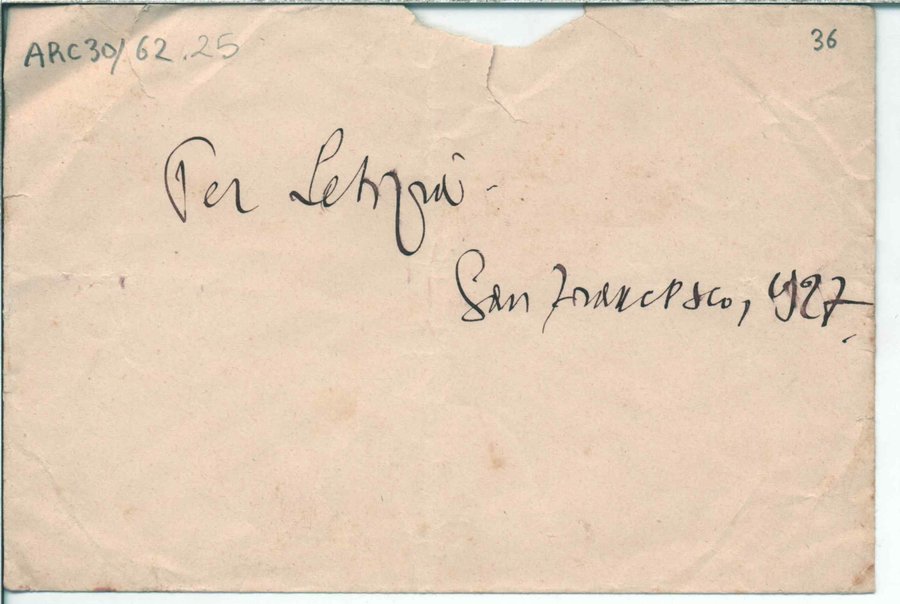 ARC30/62.25
36
Per Letizia -
San Francesco, 1927.